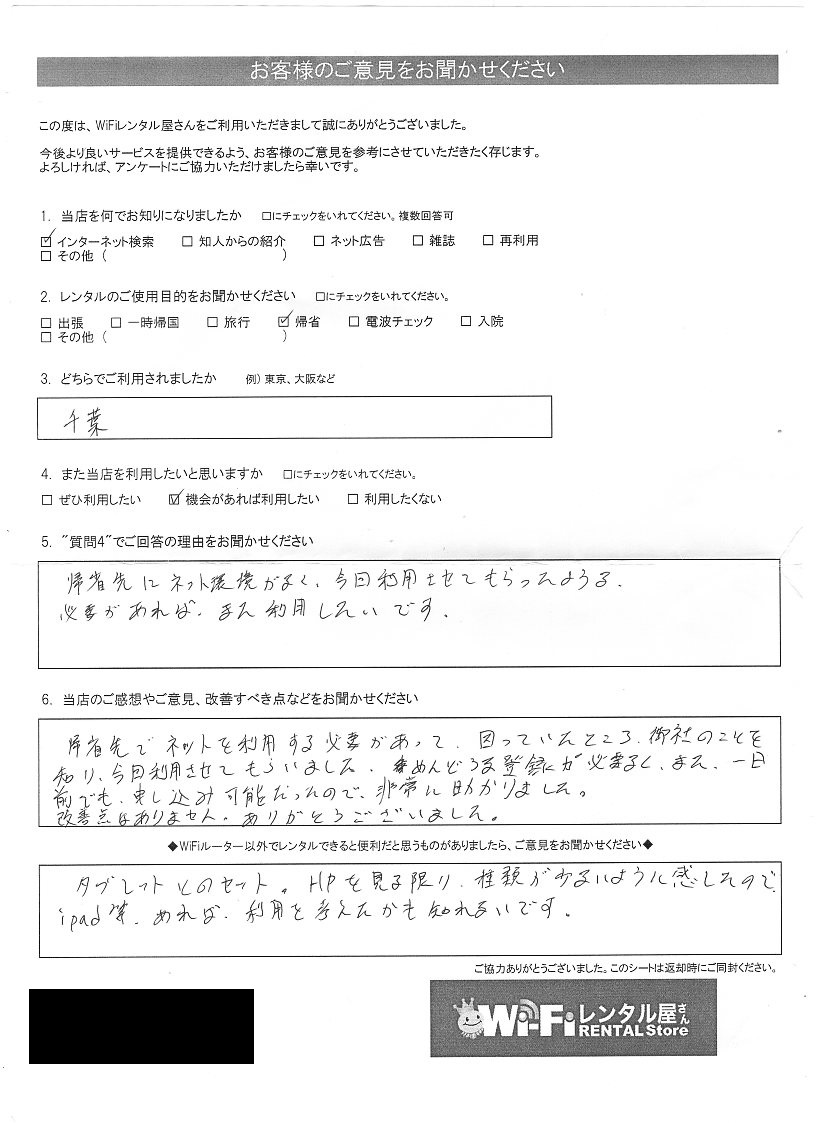 お客様のご意見をお聞かせください
この度は、WiFiレンタル屋さんをご利用いただきまして誠にありがとうございました。
今後より良いサービスを提供できるよう、お客様のご意見を参考にさせていただきたく存じます。
よろしければ、アンケートにご協力いただけましたら幸いです。
1. 当店を何でお知りになりましたか □にチェックをいれてください。複数回答可
☑ インターネット検索 □ 知人からの紹介 □ ネット広告 □ 雑誌 □ 再利用
□ その他 ( )
2. レンタルのご使用目的をお聞かせください □にチェックをいれてください。
□ 出張 □ 一時帰国 □ 旅行 ☑ 帰省 □ 電波チェック □ 入院
□ その他 ( )
3. どちらでご利用されましたか 例) 東京、大阪など
千葉
4. また当店を利用したいと思いますか □にチェックをいれてください。
□ ぜひ利用したい ☑ 機会があれば利用したい □ 利用したくない
5. "質問4"でご回答の理由をお聞かせください
帰省先にネット環境がなく、今回利用させてもらったような、
必要があれば、また利用したいです。
6. 当店のご感想やご意見、改善すべき点などをお聞かせください
帰省先でネットを利用する必要があって、困っていたところ、御社のことを
知り、今回利用させてもらいました。めんどうな登録が必要なく、また、一日
前でも、申し込み可能だったので、非常に助かりました。
改善点はありません。ありがとうございました。
◆WiFiルーター以外でレンタルできると便利だと思うものがありましたら、ご意見をお聞かせください◆
タブレットとのセット。HPを見る限り、種類が少ないように感じたので、
ipad等、あれば、利用を考えたかも知れないです。
ご協力ありがとうございました。このシートは返却時にご同封ください。
Wi-Fiレンタル屋さん
RENTAL Store